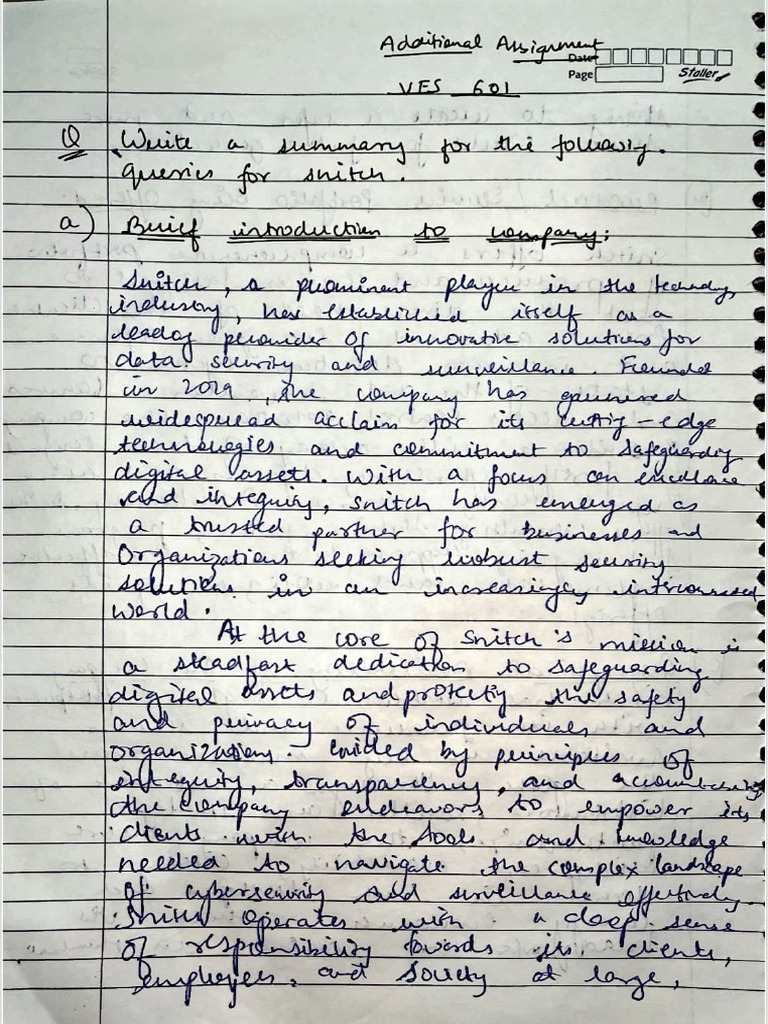 Additional Assignment
Date
Page
Staller
VES 601
Q Write a summary for the following.
queries for snitch.
a) Brief introduction to company:
Snitch, a prominent player in the technology
industry, has established itself as a
leading provider of innovative solutions for
data security and surveillance. Founded
in 2019, the company has garnered
widespread acclaim for its cutting-edge
technologies and commitment to safeguarding
digital assets. With a focus on excellence
and integrity, snitch has emerged as
a trusted partner for businesses and
Organizations seeking robust security
solutions in an increasingly interconnected
world.
At the core of Snitch's mission is
a steadfast dedication to safeguarding
digital assets and protecting the safety
and privacy of individuals and
organizations. Guided by principles of
integrity, transparency, and accountability
the company endeavors to empower its
clients with the tools and knowledge
needed to navigate the complex landscape
of cybersecurity and surveillance effectively.
Snitch operates with a deep sense
of responsibility towards its clients,
employees, and society at large,